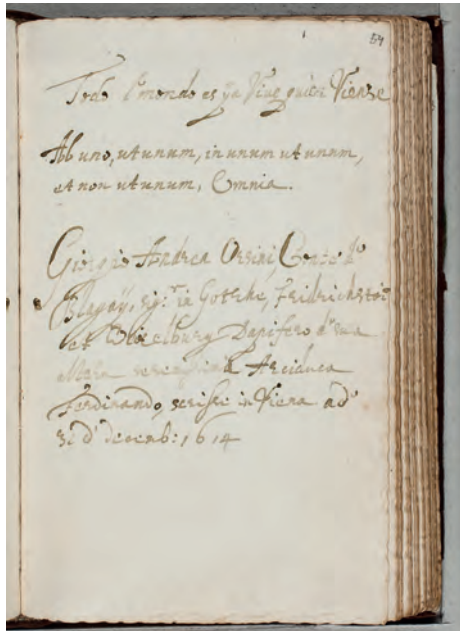 59
Todo l'mondo es ya
Ab uno, ut unum, in unum ut unum,
et non ut unum, Omnia.
Giorgio Andrea Orsini Conte dj
Blagaÿ, sig:r in Gotsche, Fridrichstein
et Dapifero d'sua
serenissima Arciduca
Ferdinando, scrisse in Viena ad'
31 d' decemb: 1614